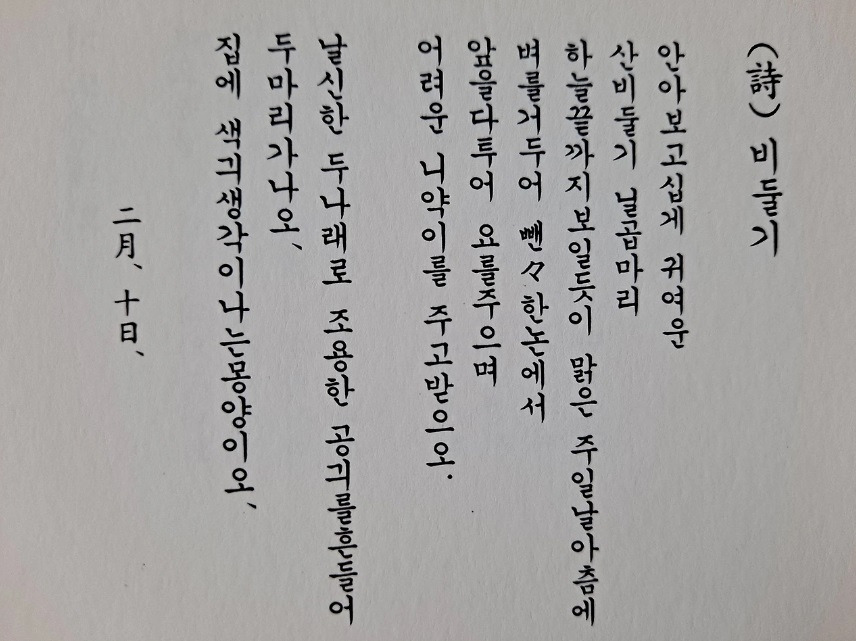 (詩) 비둘기
안아보고십게 귀여운
산비둘기 닐곱마리
하늘끝까지보일듯이 맑은 주일날아츰에
벼를거두어 뺀々한논에서
앞을다투어 요를주으며
어려운 니약이를 주고받으오.
날신한 두나래로 조용한 공긔를흔들어
두마리가나오、
집에 색긔생각이나는몽양이오、
二月、十日、